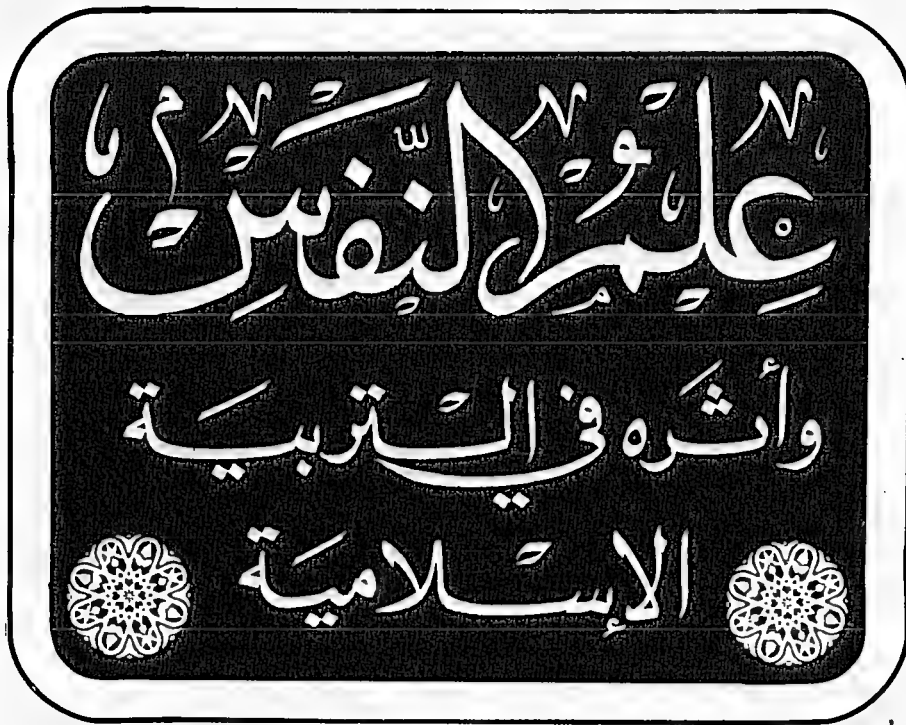 عِلمُ النَّفسِ
وأثره في التربية
الإسلامية